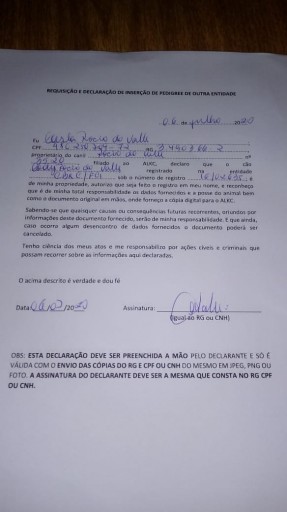 REQUISIÇÃO E DECLARAÇÃO DE INSERÇÃO DE PEDIGREE DE OUTRA ENTIDADE
06 de julho 2020
Eu
CPF RG
proprietário do canil nº
filiado ao ALKC, declaro que o cão
registrado na entidade
sob o número de registro e
de minha propriedade, autorizo que seja feito o registro em meu nome, e reconheço
que é de minha total responsabilidade os dados fornecidos e a posse do animal bem
como o documento original em mãos, onde forneço a cópia digital para o ALKC.
Sabendo-se que quaisquer causas ou consequências futuras recorrentes, oriundos por
informações deste documento fornecido, serão de minha responsabilidade. E que ainda,
caso ocorra algum desencontro de dados fornecidos o documento poderá ser
cancelado.
Tenho ciência dos meus atos e me responsabilizo por ações cíveis e criminais que
possam recorrer sobre as informações aqui declaradas.
O acima descrito é verdade e dou fé
Data /2020 Assinatura:
(Igual ao RG ou CNH)
OBS: ESTA DECLARAÇÃO DEVE SER PREENCHIDA A MÃO PELO DECLARANTE E SÓ É
VÁLIDA COM O ENVIO DAS CÓPIAS DO RG E CPF OU CNH DO MESMO EM JPEG, PNG OU
FOTO. A ASSINATURA DO DECLARANTE DEVE SER A MESMA QUE CONSTA NO RG CPF
OU CNH.